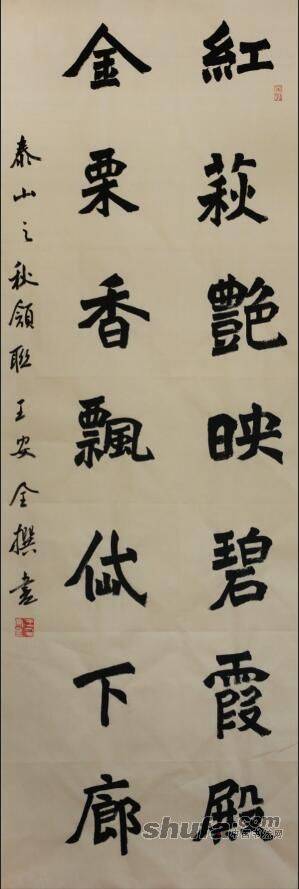 紅萩艷映碧霞殿
金栗香飄岱下廊
泰山之秋頷聯 王安全撰書